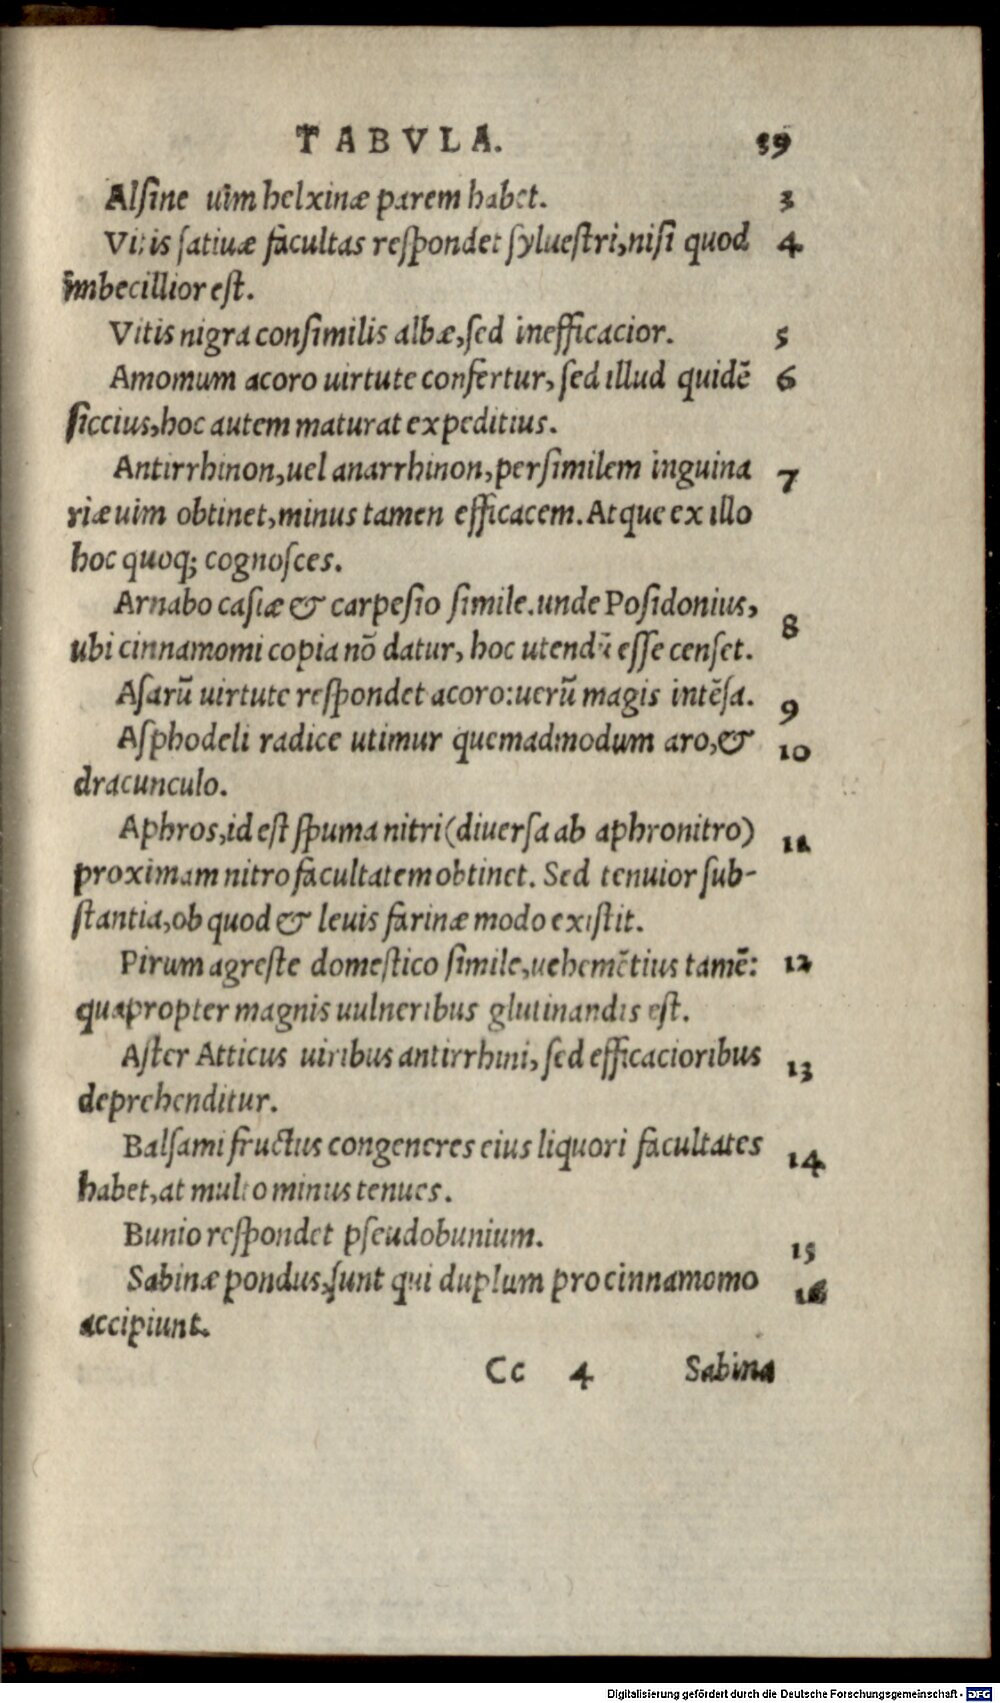 TABVLA. 39
Alſine uim helxinæ parem habet. 3
Vitis ſatiuæ facultas reſpondet ſylueſtri, niſi quod 4
imbecillior eſt.
Vitis nigra conſimilis albæ, ſed inefficacior. 5
Amomum acoro uirtute confertur, ſed illud quidē 6
ſiccius, hoc autem maturat expeditius.
Antirrhinon, uel anarrhinon, perſimilem inguina 7
riæ uim obtinet, minus tamen efficacem. Atque ex illo
hoc quoq; cognoſces.
Arnabo caſiæ & carpeſio ſimile. unde Poſidonius, 8
ubi cinnamomi copia nō datur, hoc utendū eſſe cenſet.
Aſarū uirtute reſpondet acoro: uerū magis intēſa. 9
Aſphodeli radice utimur quemadmodum aro, & 10
dracunculo.
Aphros, id eſt ſpuma nitri (diuerſa ab aphronitro) 11
proximam nitro facultatem obtinet. Sed tenuior ſub-
ſtantia, ob quod & leuis farinæ modo exiſtit.
Pirum agreſte domeſtico ſimile, uehemētius tamē: 12
quapropter magnis uulneribus glutinandis eſt.
Aſter Atticus uiribus antirrhini, ſed efficacioribus 13
deprehenditur.
Balſami fructus congeneres eius liquori facultates 14
habet, at multo minus tenues.
Bunio reſpondet pſeudobunium. 15
Sabinæ pondus, ſunt qui duplum pro cinnamomo 16
accipiunt.
Cc 4 Sabina
Digitalisierung gefördert durch die Deutsche Forschungsgemeinschaft - DFG